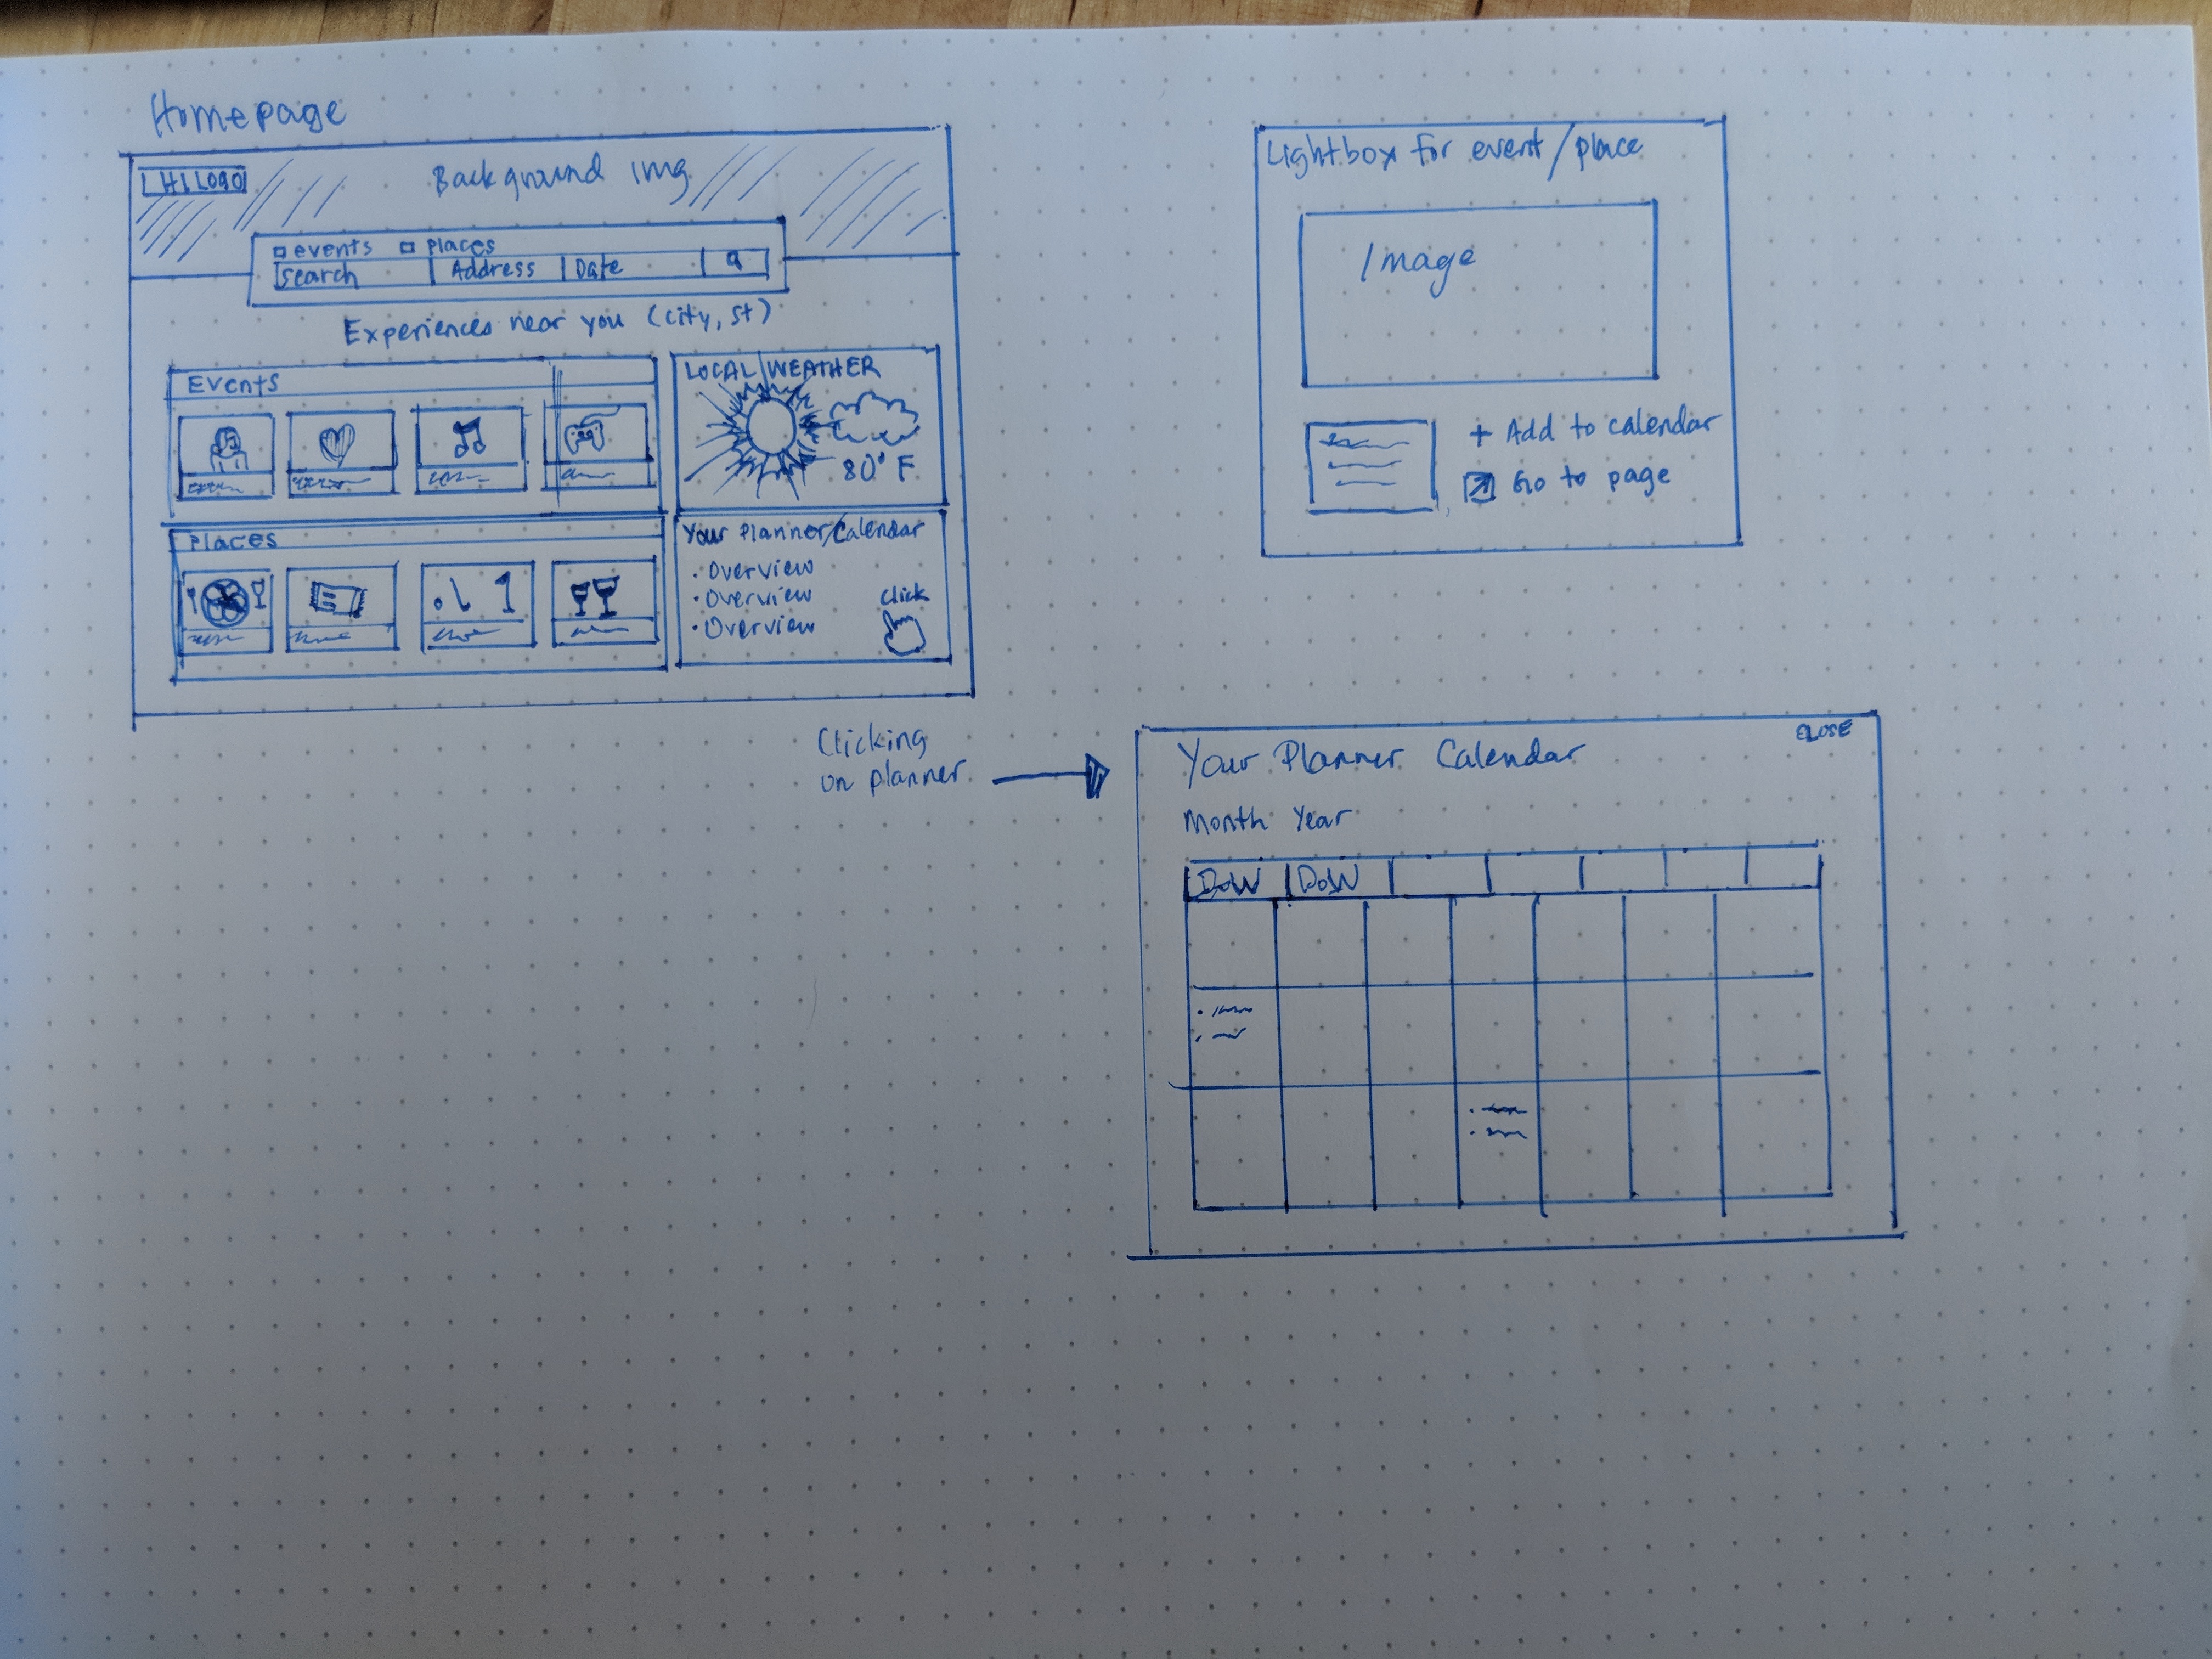 Homepage
LHL Logo
Background img
events places
Search Address Date
Experiences near you (city, st)
Events
LOCAL WEATHER
80° F
Places
Your Planner/Calendar
• Overview
• Overview
• Overview
click
Lightbox for event/place
Image
+ Add to calendar
Go to page
Clicking
on planner
CLOSE
Your Planner Calendar
Month Year
DoW DoW